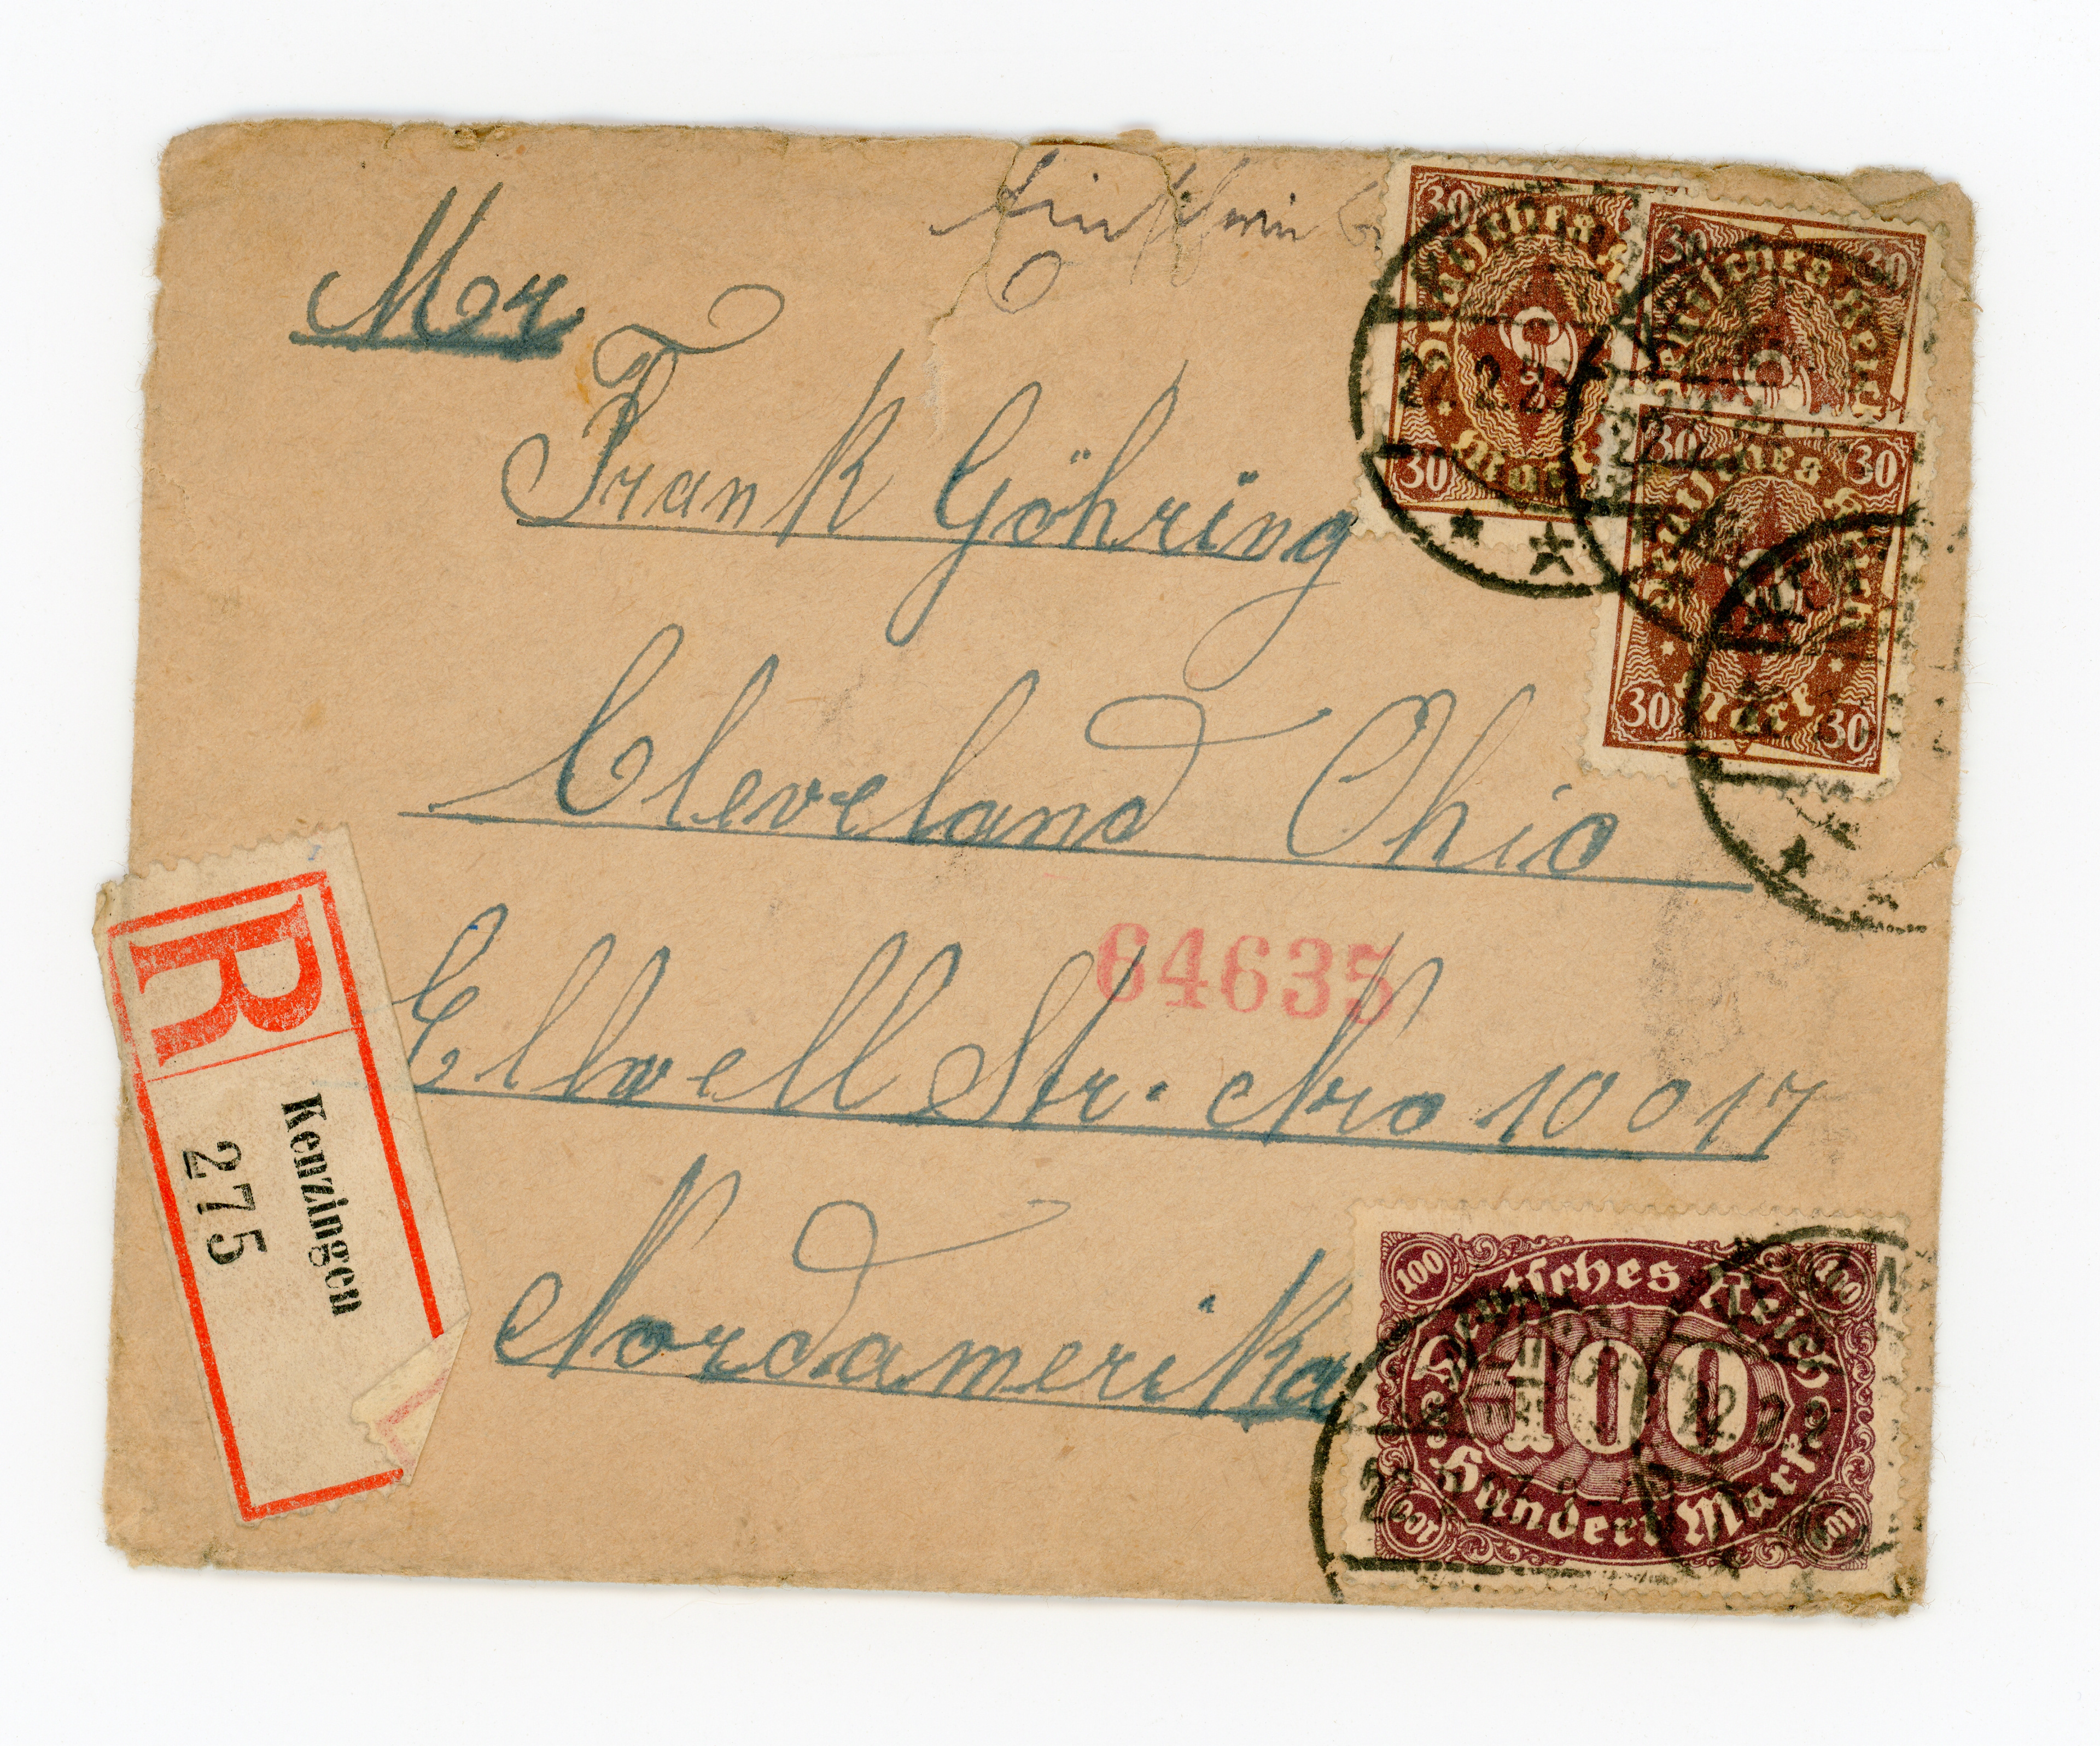 Mr
Frank Göhring
Cleveland Ohio
Ellwell Str. Nro 10017
Nordamerika
64635
R
Kenzingen
275
30 30
Deutsches Reich
30 Mark
30 30
Deutsches Reich
30 30
Deutsches Reich
30 Mark 30
22.2.23
100 100
Deutsches Reich
100
Hundert Mark
100 100